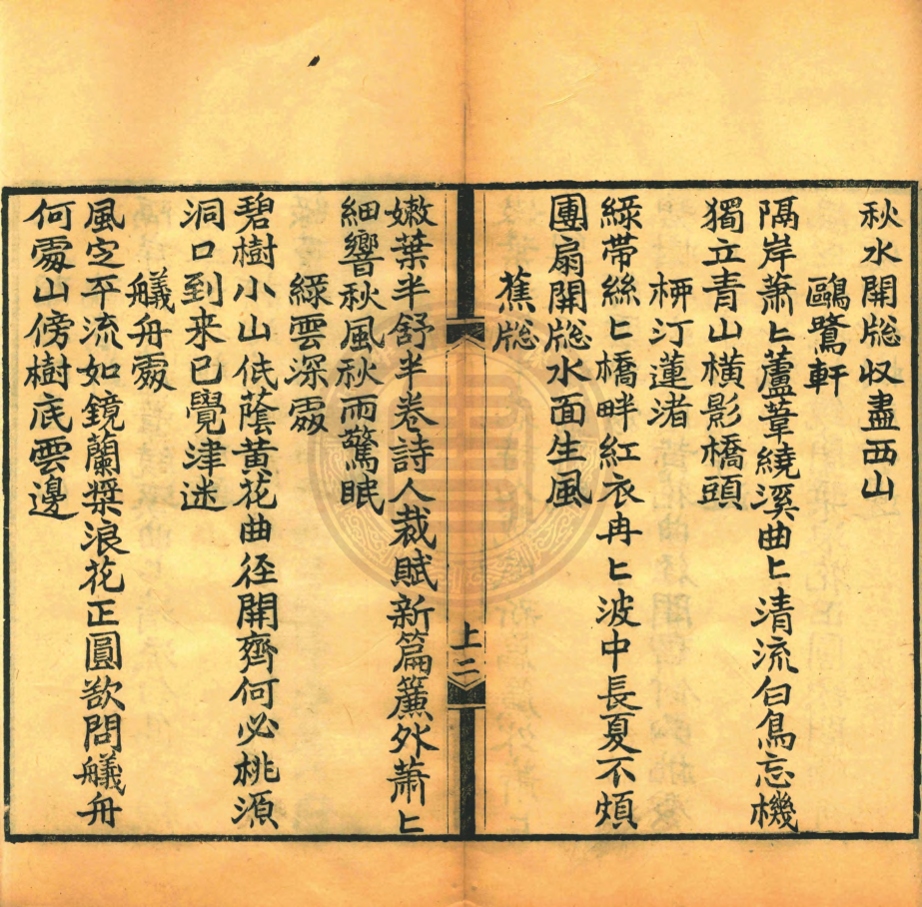 秋水開牎収盡西山
鷗鷺軒
隔岸蕭〻蘆葦繞溪曲〻清流白鳥忘機
獨立青山橫影橋頭
柳汀蓮渚
綠帶絲〻橋畔紅衣冉〻波中長夏不煩
團扇開牎水面生風
蕉牎
上二
嫩葉半舒半卷詩人裁賦新篇簾外蕭〻
細響秋風秋雨驚眠
綠雲深處
碧樹小山低蔭黃花曲径開齊何必桃源
洞口到来已覺津迷
艤舟處
風定平流如鏡蘭槳浪花正圓欲問艤舟
何處山傍樹底雲邊